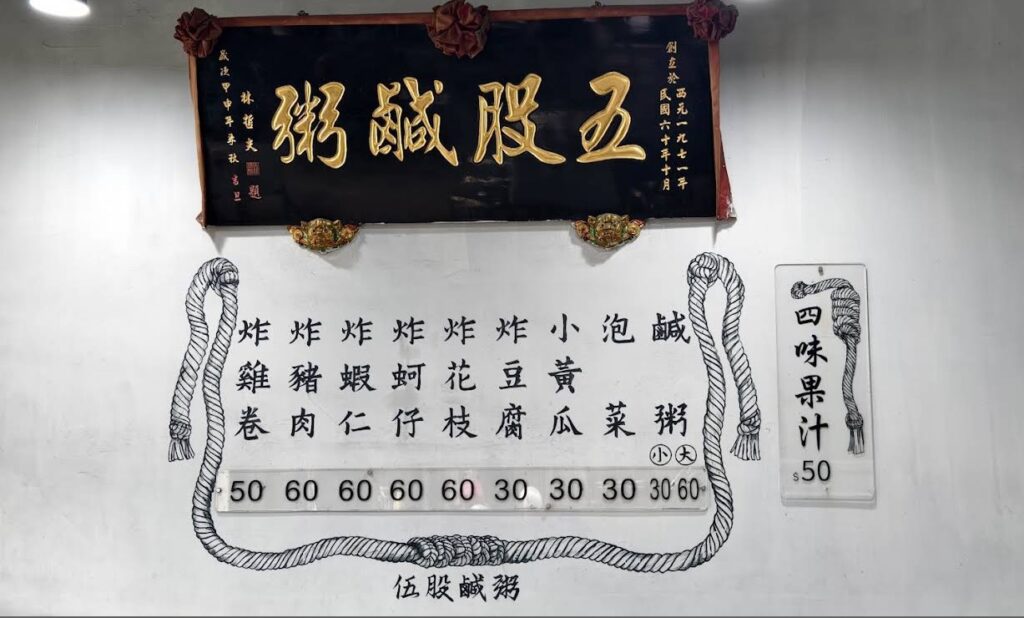 創立於
西元一九七一年
民國六十年十月
五股鹹粥
林哲夫 題
歲次甲申年 秋 吉旦
四味果汁
$50
鹹粥
大 60
小 30
泡菜
30
小黃瓜
30
炸豆腐
30
炸花枝
60
炸蚵仔
60
炸蝦仁
60
炸豬肉
60
炸雞卷
50
伍股鹹粥